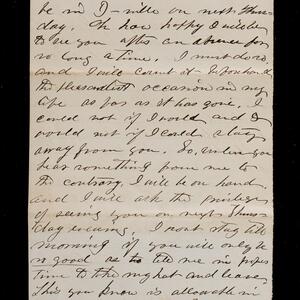 be in J-ville on next Thurs-
day. Oh how happy I will be
to see you after an absence for
so long a time. I must do so
and I will count it beforehand
the pleasantest occasion in my
life as far as it has gone. I
could not if I would and I
would not if I could stay
away from you. So, unless you
hear something from me to
the contrary, I will be on hand
and I will ask the privilege
of seeing you on next Thurs-
day evening. I wont stay till
morning if you will only be
so good as to tell me in proper
time to take my hat and leave.
This you know is allowable in